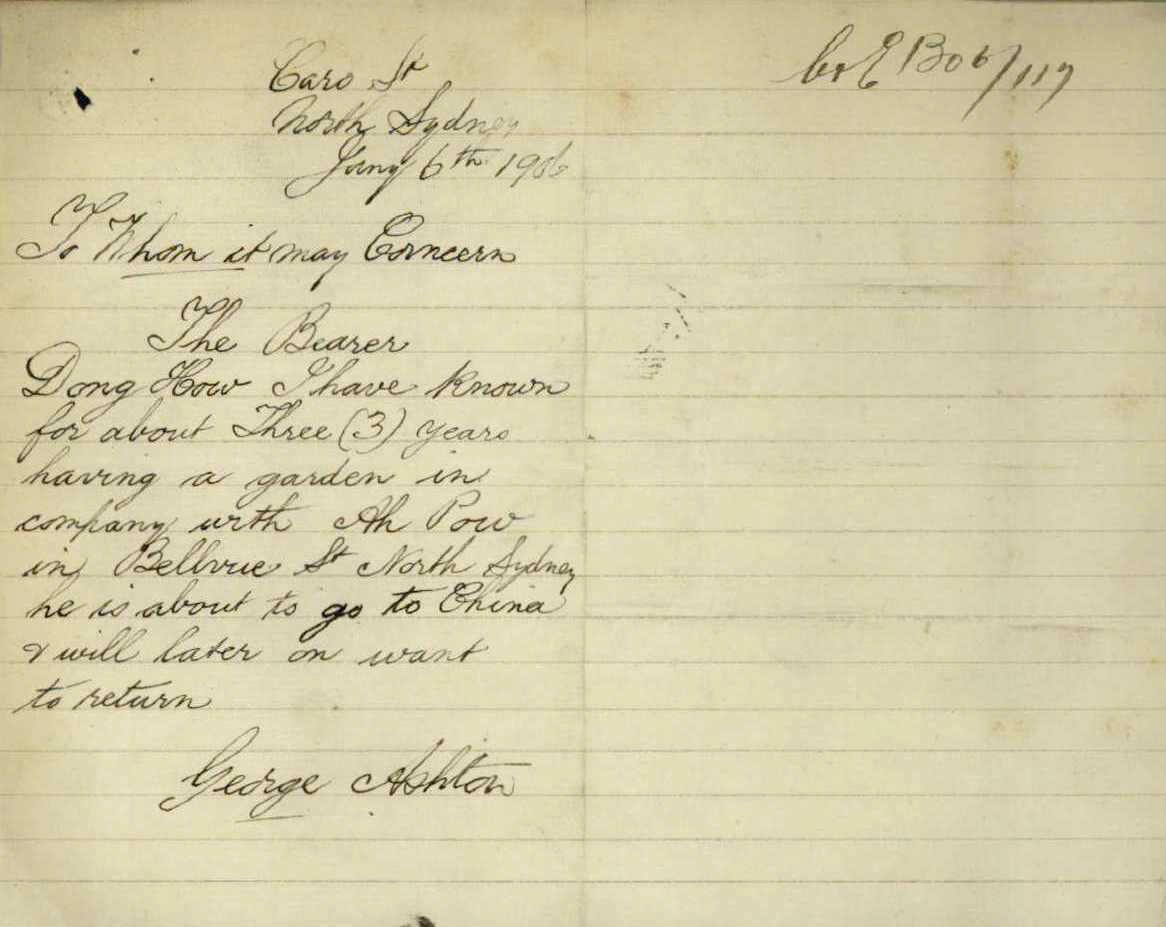 Caro St
North Sydney
Jany 6th 1906
To Whom it may Concern
The Bearer
Dong How I have known
for about Three (3) years
having a garden in
company with Ah Pow
in Bellvue St North Sydney
he is about to go to China
& will later on want
to return
George Ashton
B06/117